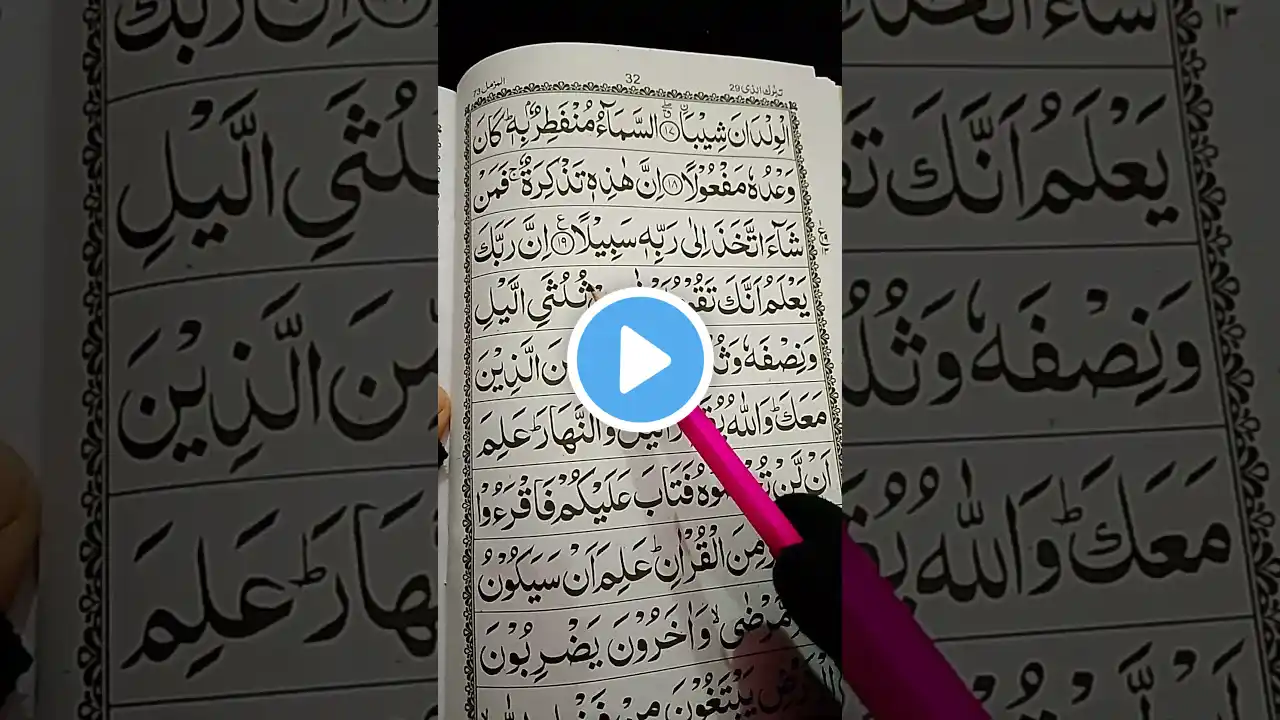 المزمل 73
32
تبٰرك الذی 29
الْوِلْدَانَ شِيْبَاۨ ﴿١٧﴾ السَّمَآءُ مُنْفَطِرٌۢ بِهٖ ؕ كَانَ
وَعْدُهٗ مَفْعُوْلًا ﴿١٨﴾ اِنَّ هٰذِهٖ تَذْكِرَةٌ ۚ فَمَنْ
شَآءَ اتَّخَذَ اِلٰى رَبِّهٖ سَبِيْلًا ﴿١٩﴾ اِنَّ رَبَّكَ
يَعْلَمُ اَنَّكَ ثُلُثَيِ الَّيْلِ
وَنِصْفَهٗ الَّذِيْنَ
مَعَكَ ؕ وَاللّٰهُ وَالنَّهَارَ ؕ عَلِمَ
اَنْ لَّنْ فَتَابَ عَلَيْكُمْ فَاقْرَءُوْا
مِنَ الْقُرْاٰنِ ؕ عَلِمَ اَنْ سَيَكُوْنُ
مَّرْضٰى ۙ وَاٰخَرُوْنَ يَضْرِبُوْنَ
يَبْتَغُوْنَ مِنْ